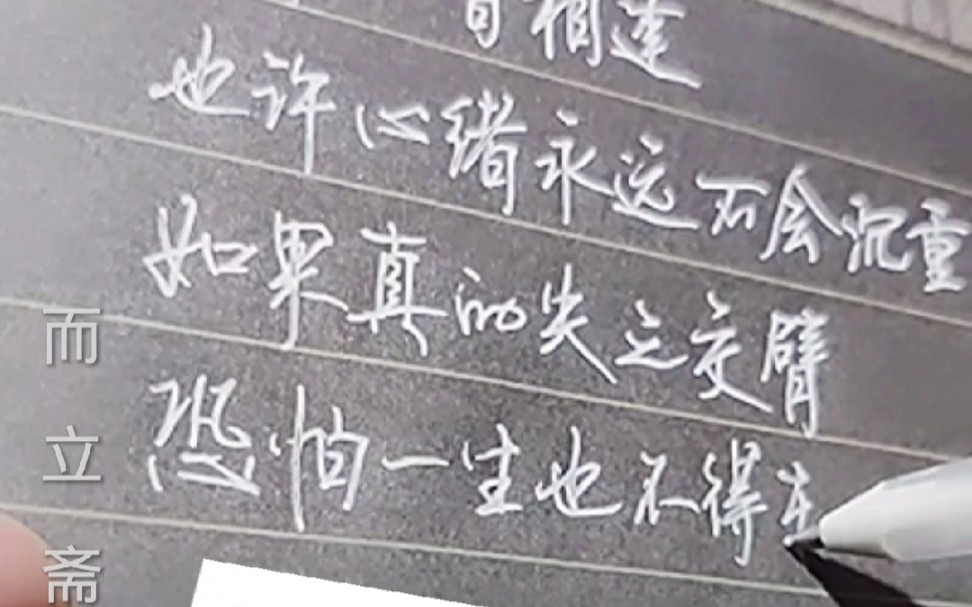 相逢
也许心绪永远不会沉重
如果真的失之交臂
恐怕一生也不得
而立斋